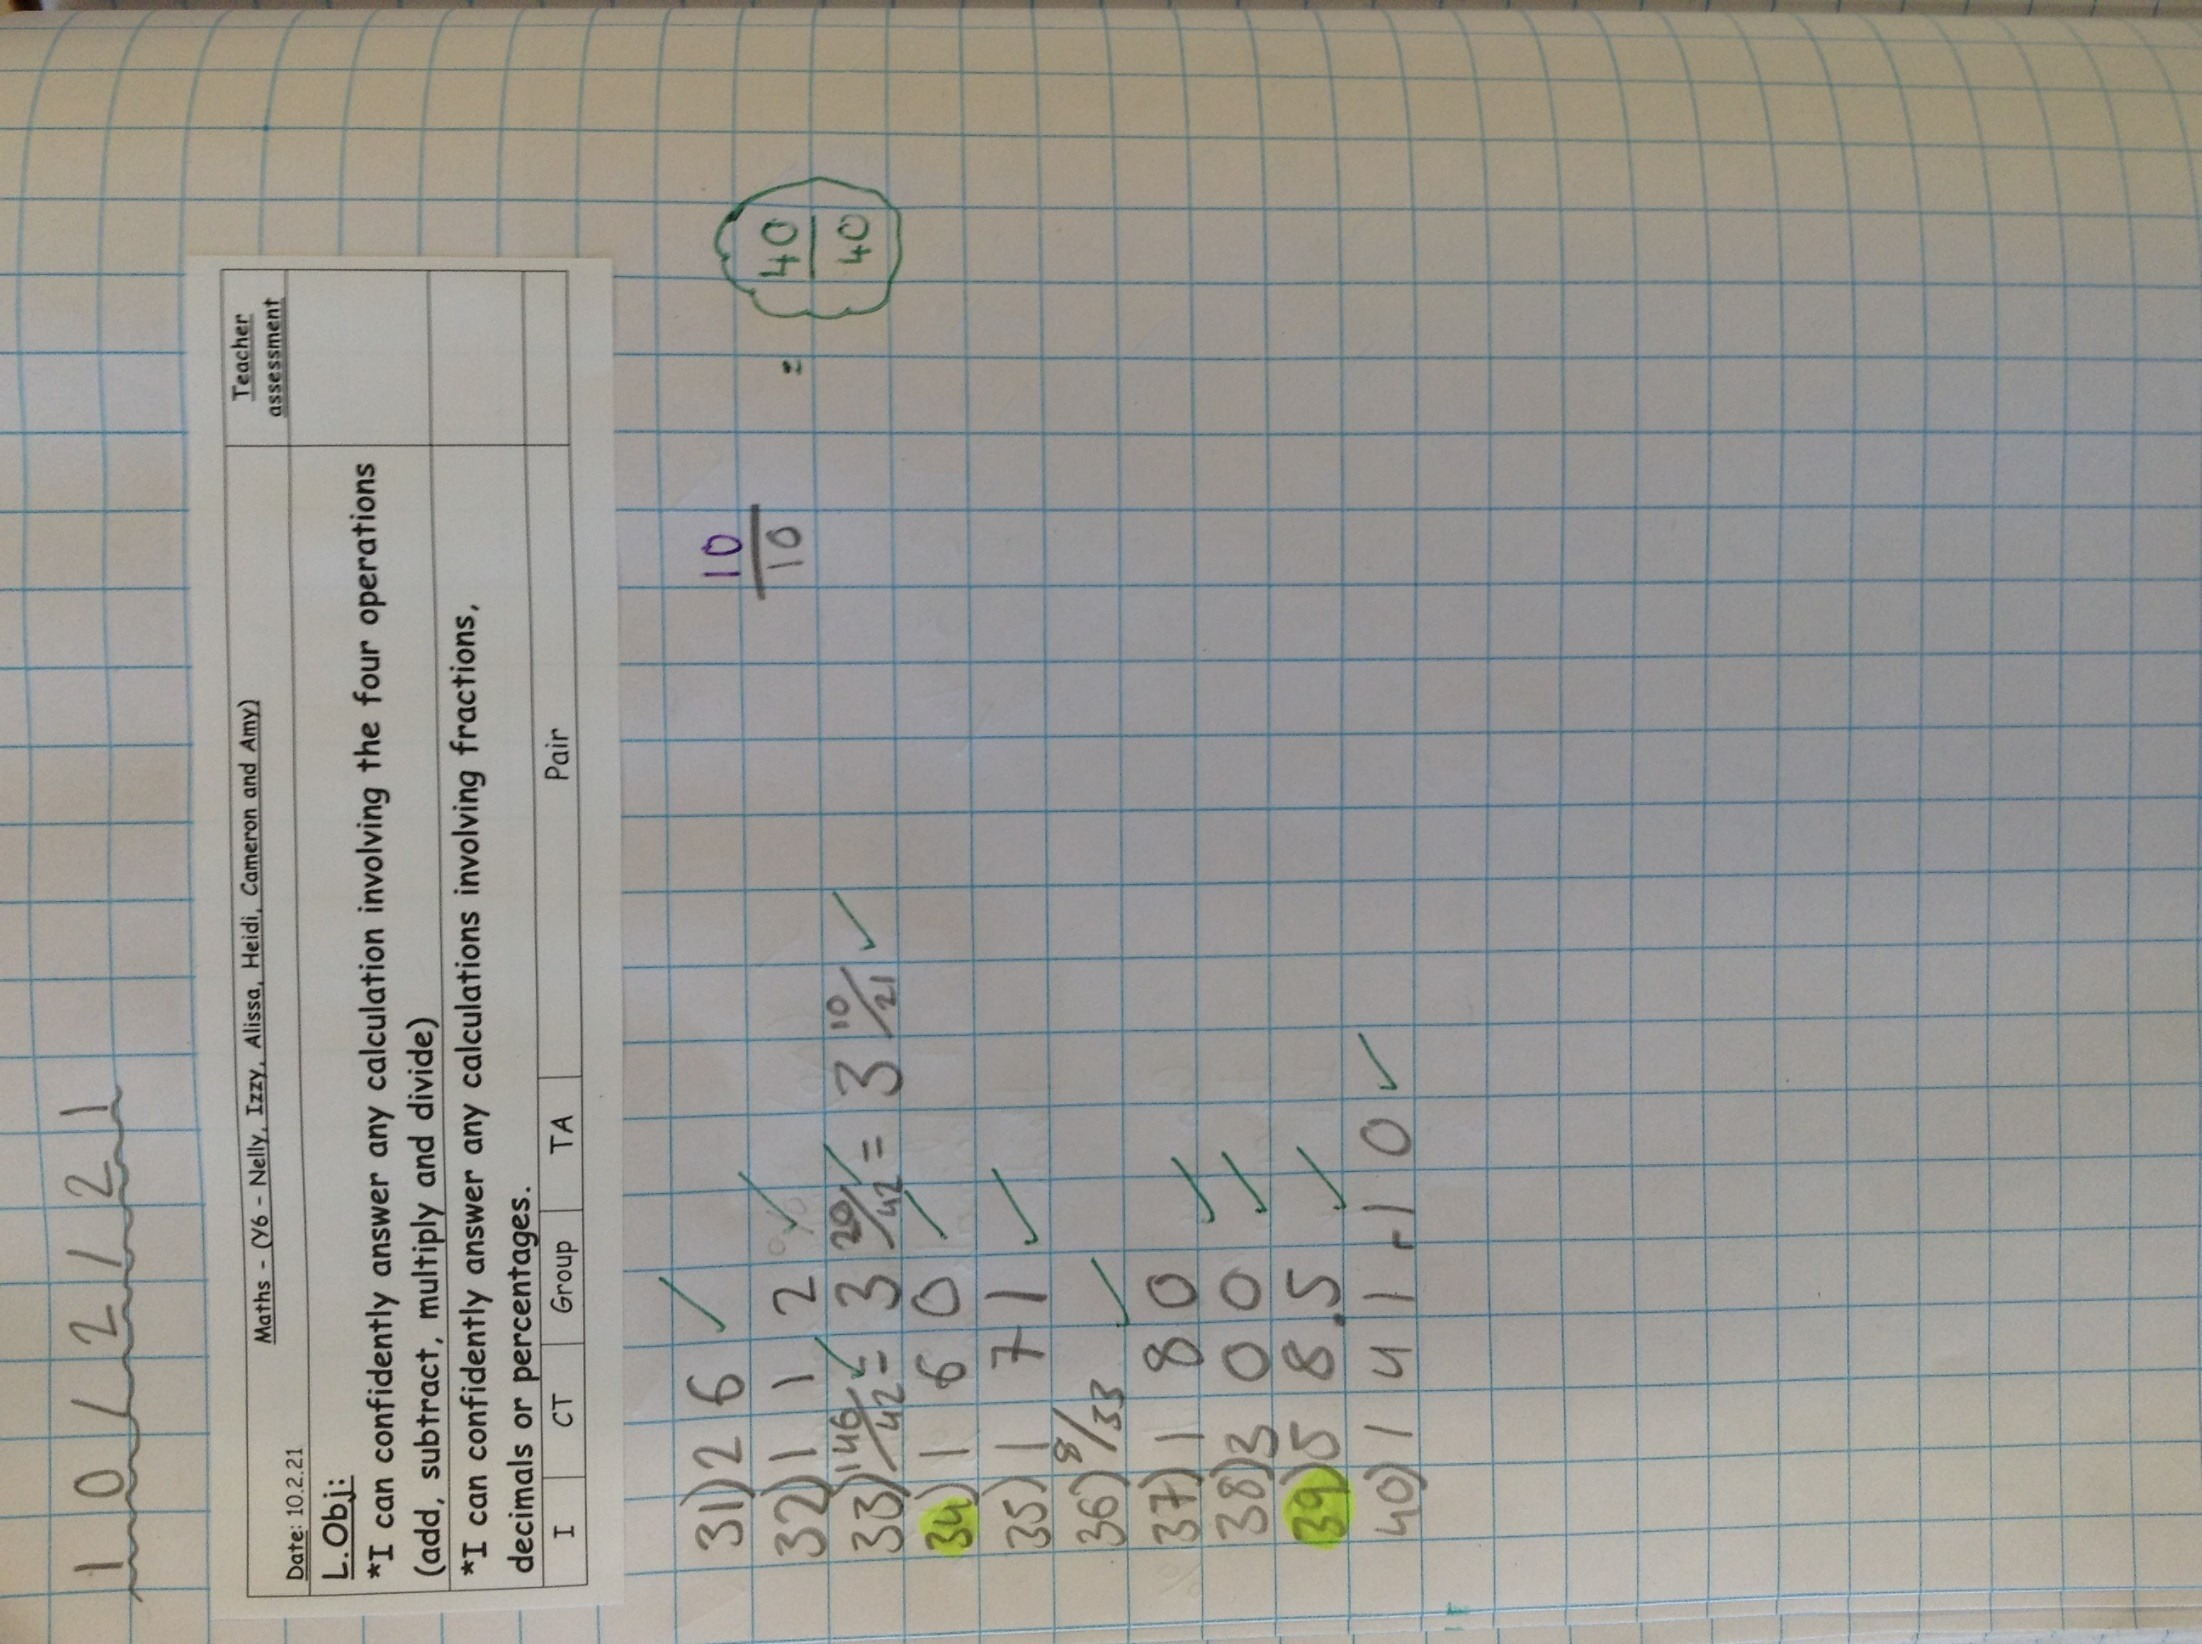 10/2/21
Maths - (Y6 - Nelly, Izzy, Alissa, Heidi, Cameron and Amy)
Teacher assessment
Date: 10.2.21
L.Obj:
*I can confidently answer any calculation involving the four operations
(add, subtract, multiply and divide)
*I can confidently answer any calculations involving fractions,
decimals or percentages.
I CT Group TA Pair
31) 26 ✓
10/10
= 40/40
32) 112 ✓
33) 146/42 ✓ = 3 20/42 ✓ = 3 10/21 ✓
34) 160 ✓
35) 171 ✓
36) 8/33 ✓
37) 180 ✓
38) 300 ✓
39) 58.5 ✓
40) 141-10 ✓